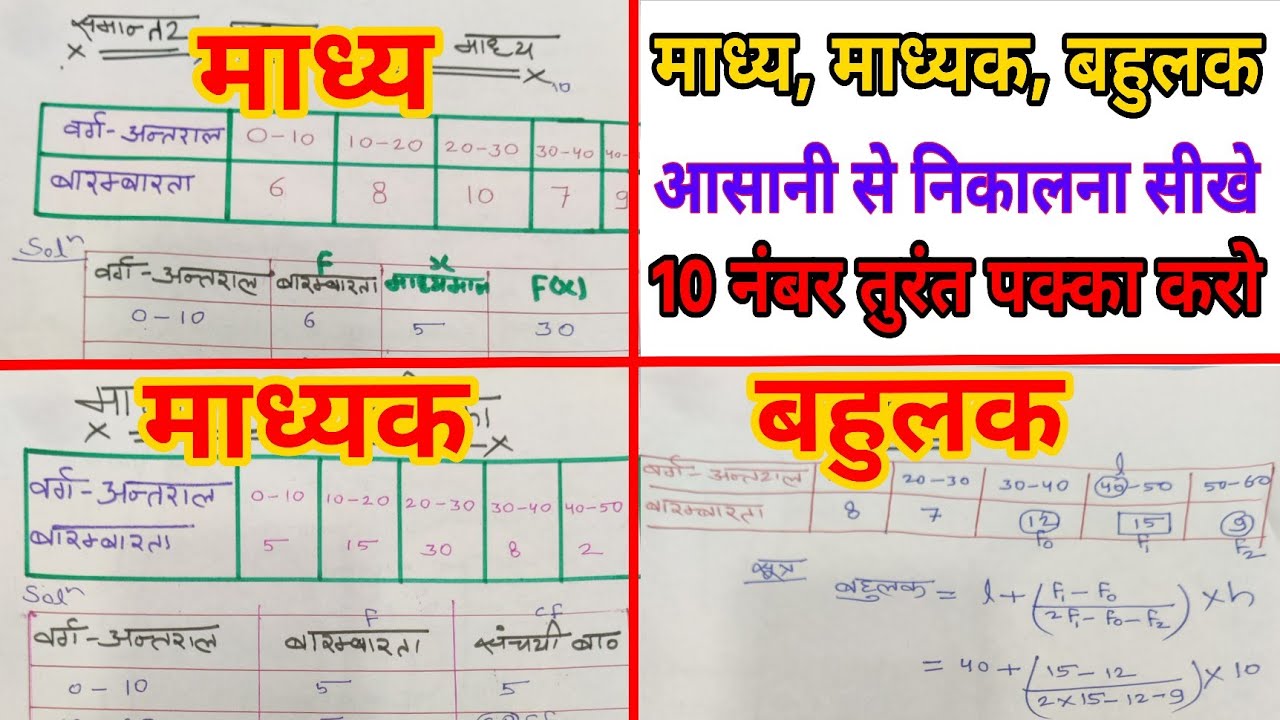 समान्तर
माध्य
माध्य
10
वर्ग-अन्तराल 0-10 10-20 20-30 30-40 40-
बारम्बारता 6 8 10 7 9
Solⁿ
F x
वर्ग-अन्तराल बारम्बारता माध्यमान F(x)
0-10 6 5 30
माध्य, माध्यक, बहुलक
आसानी से निकालना सीखे
10 नंबर तुरंत पक्का करो
माध्यक
वर्ग-अन्तराल 0-10 10-20 20-30 30-40 40-50
बारम्बारता 5 15 30 8 2
Solⁿ
F cf
वर्ग-अन्तराल बारम्बारता संचयी बा०
0-10 5 5
बहुलक
l
वर्ग-अन्तराल 20-30 30-40 40-50 50-60
बारम्बारता 8 7 12 15 9
F₀ F₁ F₂
सूत्र बहुलक = l + (F₁ - F₀ / 2F₁ - F₀ - F₂) × h
= 40 + (15 - 12 / 2×15 - 12 - 9) × 10